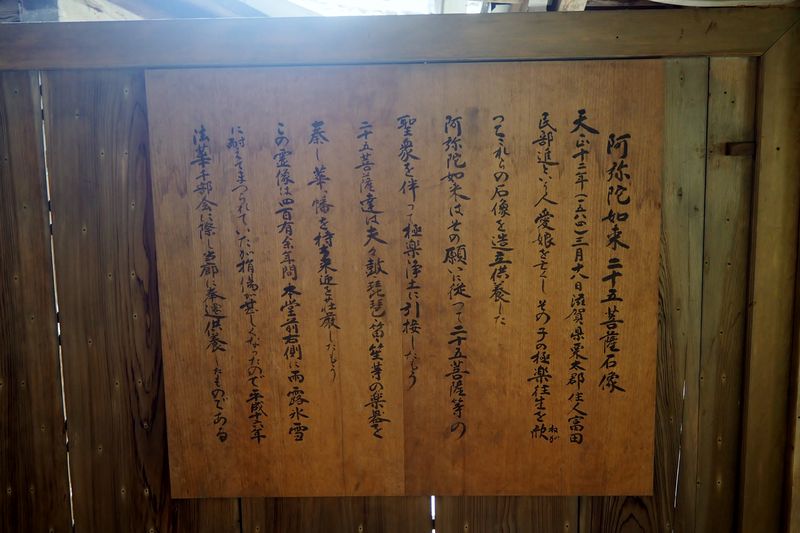 阿弥陀如来二十五菩薩石像
天正十二年(一五八四)三月十八日滋賀県栗太郡住人富田
民部進という人愛娘を亡くしその子の極楽往生を欣ねが
ってこれらの石像を造立供養した
阿弥陀如来はその願いに従って二十五菩薩等の
聖衆を伴って極楽浄土に引接したもう
二十五菩薩達は夫々鼓琵琶笛笙等の楽器を
奏し華幡を持ち来迎を荘厳したもう
この霊像は四百有余年間本堂前右側に雨露氷雪
に耐えてまつられていたが損傷が甚しくなったので平成十六年
法華千部会に際し当郭に奉遷供養したものである